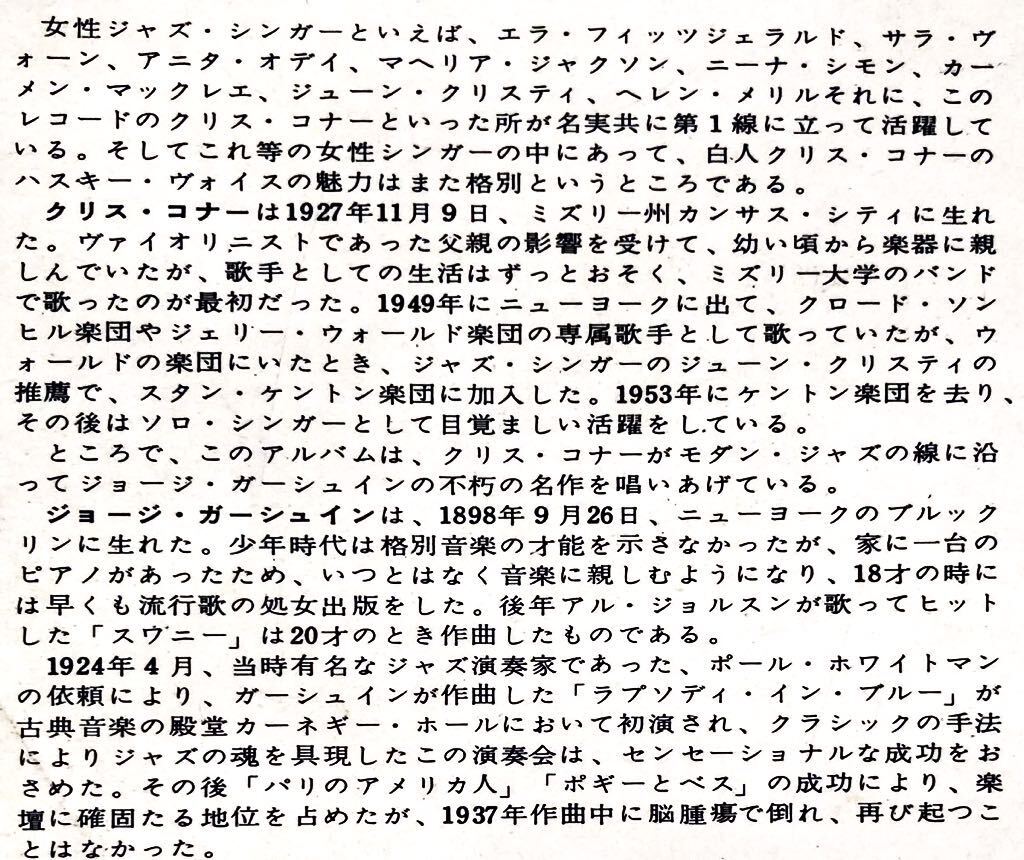 女性ジャズ・シンガーといえば、エラ・フィッツジェラルド、サラ・ヴ
ォーン、アニタ・オデイ、マヘリア・ジャクソン、ニーナ・シモン、カー
メン・マックレエ、ジューン・クリスティ、ヘレン・メリルそれに、この
レコードのクリス・コナーといった所が名実共に第1線に立って活躍して
いる。そしてこれ等の女性シンガーの中にあって、白人クリス・コナーの
ハスキー・ヴォイスの魅力はまた格別というところである。
クリス・コナーは1927年11月9日、ミズリー州カンサス・シティに生れ
た。ヴァイオリニストであった父親の影響を受けて、幼い頃から楽器に親
しんでいたが、歌手としての生活はずっとおそく、ミズリー大学のバンド
で歌ったのが最初だった。1949年にニューヨークに出て、クロード・ソン
ヒル楽団やジェリー・ウォールド楽団の専属歌手として歌っていたが、ウ
ォールドの楽団にいたとき、ジャズ・シンガーのジューン・クリスティの
推薦で、スタン・ケントン楽団に加入した。1953年にケントン楽団を去り、
その後はソロ・シンガーとして目覚ましい活躍をしている。
ところで、このアルバムは、クリス・コナーがモダン・ジャズの線に沿
ってジョージ・ガーシュインの不朽の名作を唱いあげている。
ジョージ・ガーシュインは、1898年9月26日、ニューヨークのブルック
リンに生れた。少年時代は格別音楽の才能を示さなかったが、家に一台の
ピアノがあったため、いつとはなく音楽に親しむようになり、18才の時に
は早くも流行歌の処女出版をした。後年アル・ジョルスンが歌ってヒット
した「スワニー」は20才のとき作曲したものである。
1924年4月、当時有名なジャズ演奏家であった、ポール・ホワイトマン
の依頼により、ガーシュインが作曲した「ラプソディ・イン・ブルー」が
古典音楽の殿堂カーネギー・ホールにおいて初演され、クラシックの手法
によりジャズの魂を具現したこの演奏会は、センセーショナルな成功をお
さめた。その後「パリのアメリカ人」「ポギーとベス」の成功により、楽
壇に確固たる地位を占めたが、1937年作曲中に脳腫瘍で倒れ、再び起つこ
とはなかった。